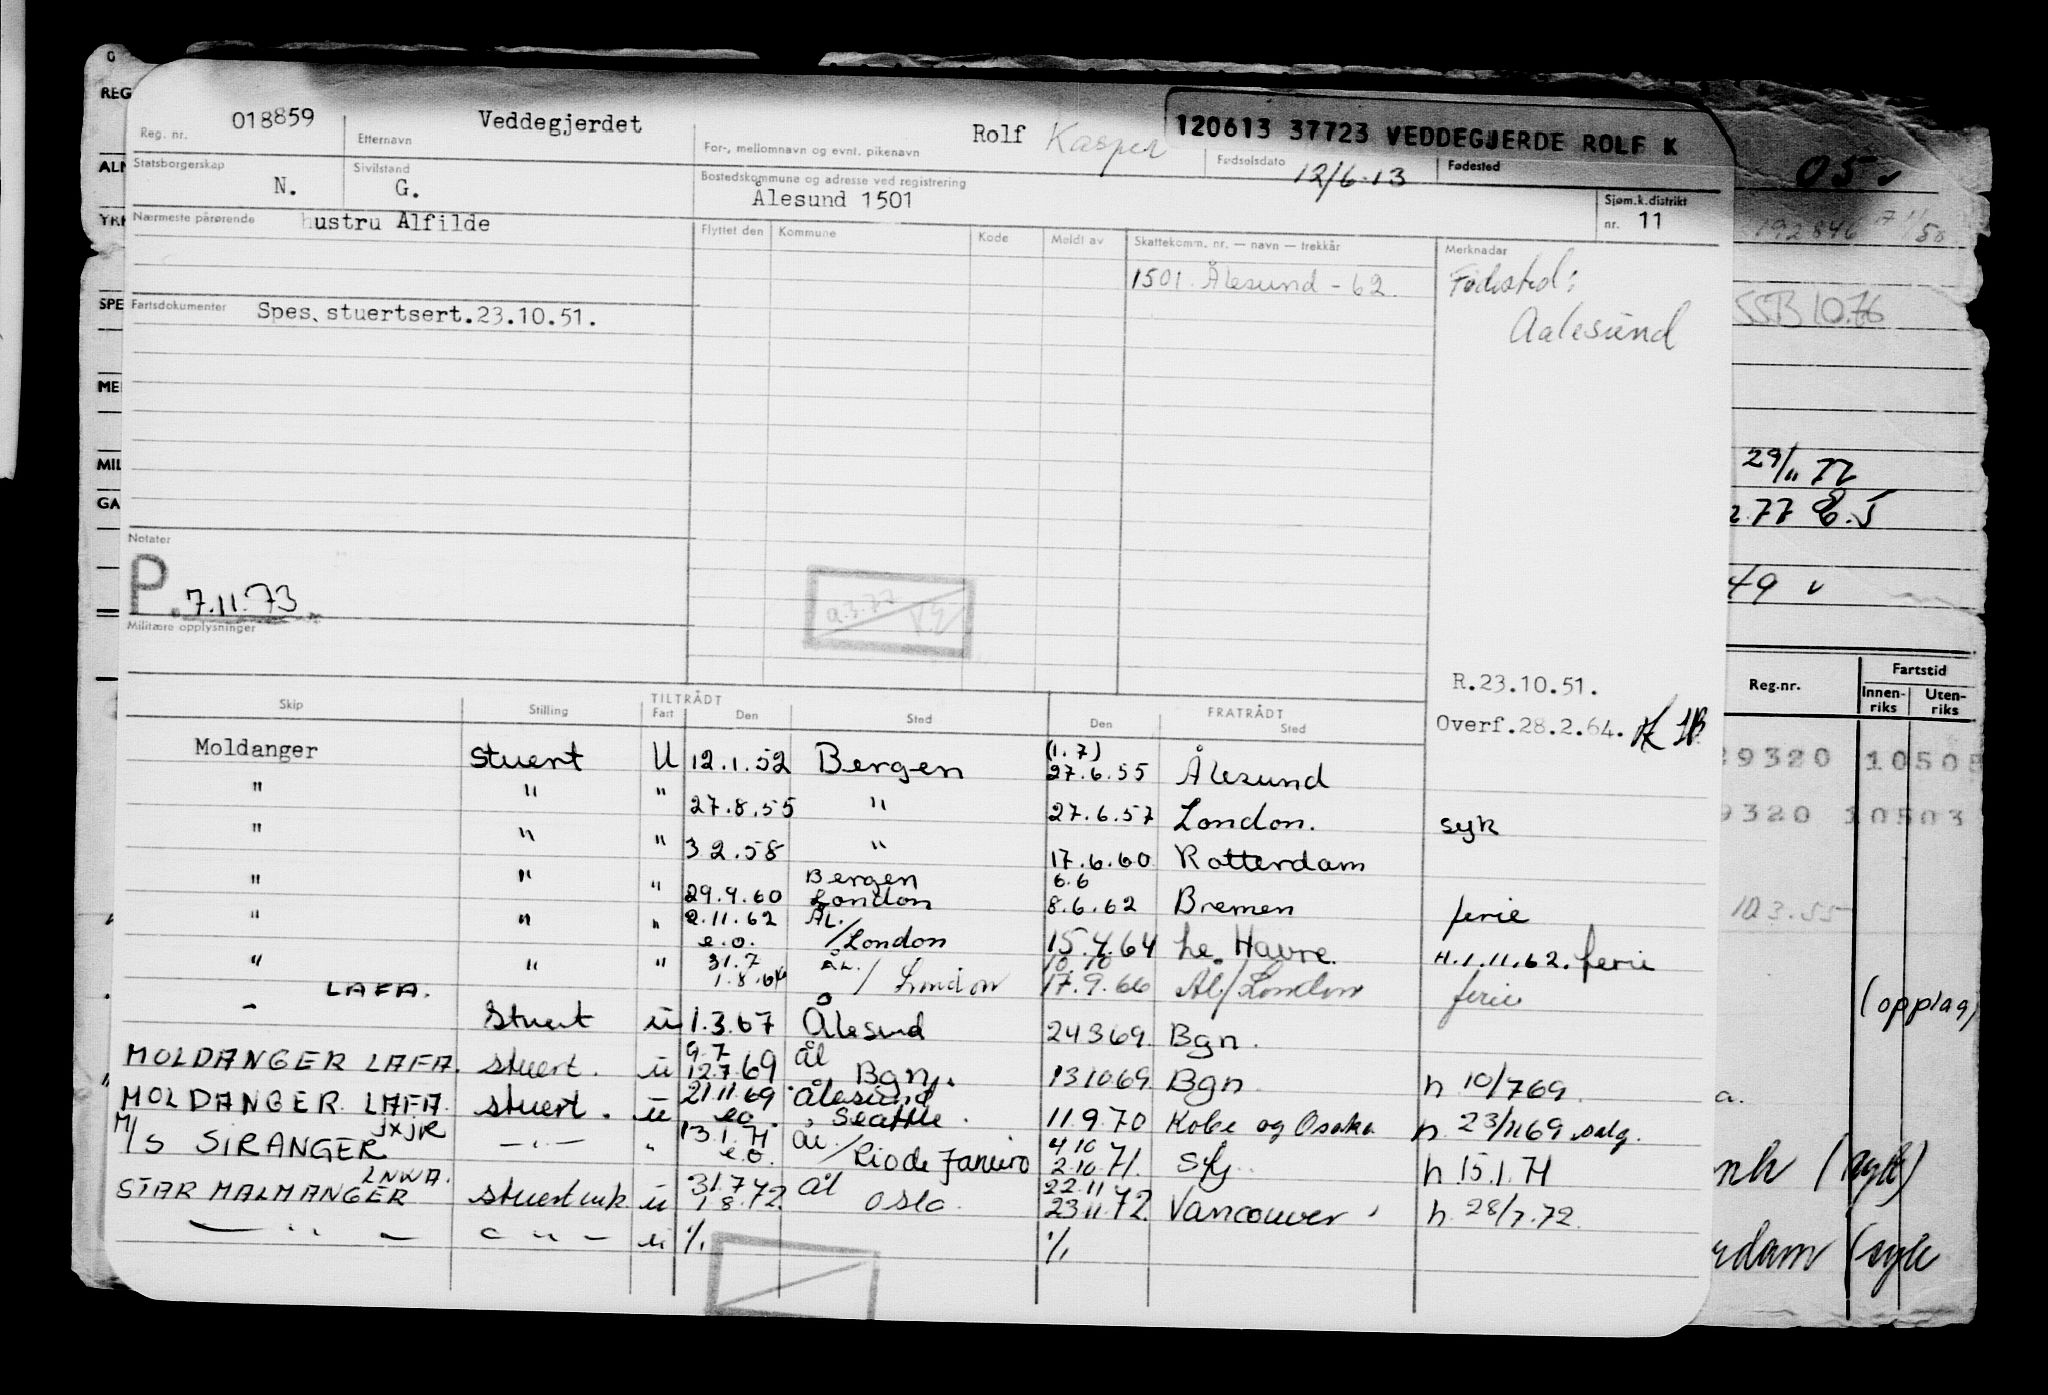 Reg. nr. 018859
Etternavn Veddegjerdet
For-, mellomnavn og evnt. pikenavn Rolf Kasper
120613 37723 VEDDEGJERDE ROLF K
Fødselsdato 12/6-13
Fødested
Statsborgerskap N.
Sivilstand G.
Bostedskommune og adresse ved registrering Ålesund 1501
Sjøm.k.distrikt nr. 11
Nærmeste pårørende hustru Alfilde
Flyttet den Kommune Kode Meldt av Skattekomm. nr. — navn — trekkår Merknadar
1501 Ålesund - 62
Fødested:
Aalesund
Fartsdokumenter Spes. stuertsert.23.10.51.
Notater
P. 7.11.73
Militære opplysninger
R.23.10.51.
Overf.28.2.64.
TILTRÅDT FRATRÅDT
Skip Stilling Fart Den Sted Den Sted
Moldanger Stuert U 12.1.52 Bergen (1.7) 27.6.55 Ålesund
" " " 27.8.55 " 27.6.57 London. syk
" " " 3.2.58 " 17.6.60 Rotterdam
" " " 29.9.60 Bergen London 6.6 8.6.62 Bremen ferie
" " " 2.11.62 e.o. ÅL. /London 15.4.64 Le Havre. H.1.11.62. ferie
" " " 31.7 1.8.64 ÅL. / London 10.10 17.9.66 Ål/London ferie
- LAFA. Stuert u 1.3.67 Ålesund 24369 Bgn.
MOLDANGER LAFA. stuert. u 9.7 12.7.69 ål Bgn. 131069 Bgn. h 10/769.
MOLDANGER LAFA stuert. u 21.11.69 eo. Ålesund Seattle. 11.9.70 Kobe og Osaka h 23/1169 salg.
M/S SIRANGER JXJR — " — " 13.1.71 e.o. ål /Rio de Janeiro 4.10 2.10.71. Sfj. h 15.1.71
STAR MALMANGER LNWA. u 31.7 1.8.72 ål Oslo. 22.11 23.11.72. Vancouver h. 28/7.72.
— " — — " — u % %
REG
ALM
YRK
SPE
MIL
GA
05
192846
SSB 10.76
29/11 72
2.77
49
Reg.nr.
Fartstid
Innen-riks Uten-riks
29320 10503
9320 10503
(opplag)
a.
(syk)
rdam (syk